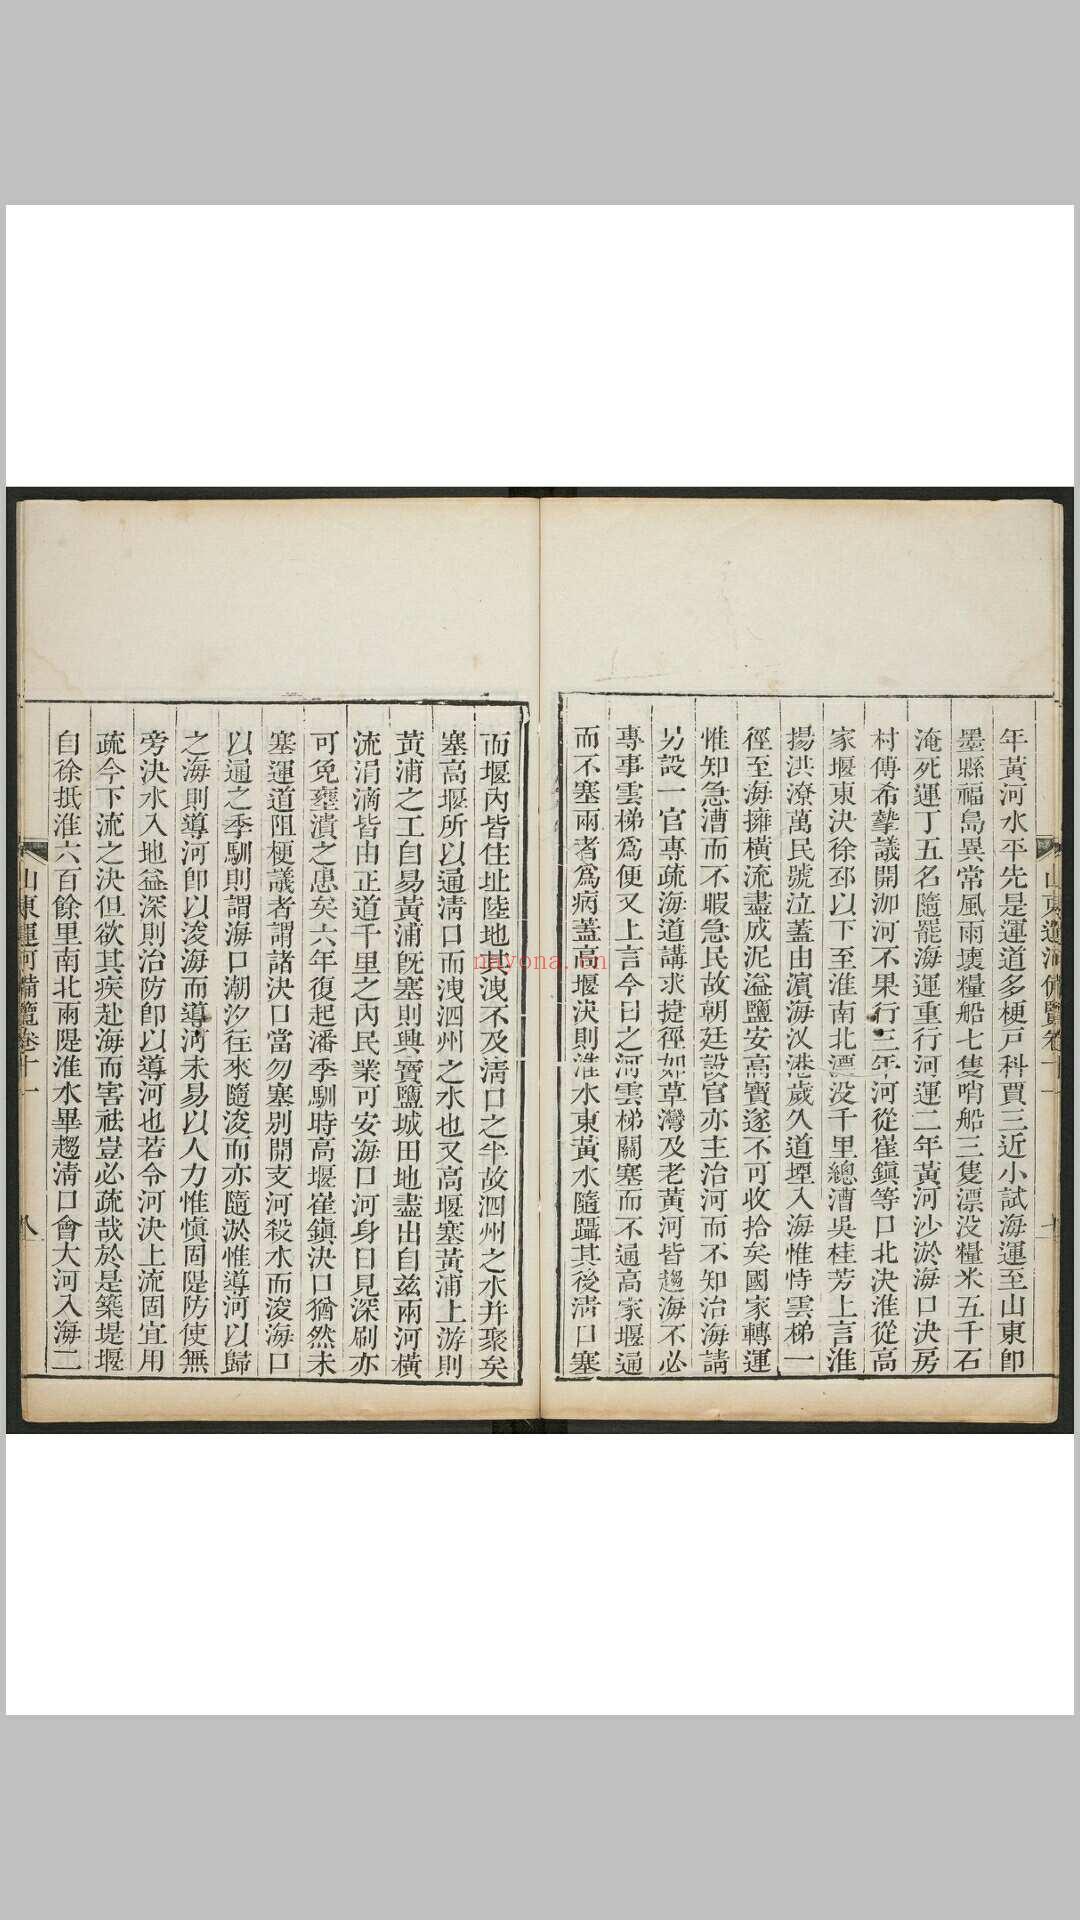 年黃河水平先是運道多梗戸科賈三近小試海運至山東卽
墨縣福島異常風雨壞糧船七隻哨船三隻漂没糧米五千石
淹死運丁五名隨罷海運重行河運二年黃河沙淤海口決房
村傅希摯議開泇河不果行三年河從崔鎭等口北決淮從高
家堰東決徐邳以下至淮南北漂没千里總漕吳桂芳上言淮
揚洪潦萬民號泣蓋由濱海汊港歲久道堙入海惟恃雲梯一
徑至海擁橫流盡成泥溢鹽安高寶遂不可收拾矣國家轉運
惟知急漕而不暇急民故朝廷設官亦主治河而不知治海請
另設一官專疏海道講求捷徑如草灣及老黃河皆趨海不必
專事雲梯爲便又上言今日之河雲梯關塞而不通高家堰通
而不塞兩者爲病蓋高堰決則淮水東黃水隨躡其後淸口塞
山東運河備覽卷十一
而堰內皆住址陸地其洩不及淸口之半故泗州之水井聚矣
塞高堰所以通淸口而洩泗州之水也又高堰塞黃浦上游則
黃浦之工自易黃浦旣塞則興寶鹽城田地盡出自兹兩河橫
流涓滴皆由正道千里之內民業可安海口河身日見深刷亦
可免壅潰之患矣六年復起潘季馴時高堰崔鎭決口猶然未
塞運道阻梗議者謂諸決口當勿塞别開支河殺水而浚海口
以通之季馴則謂海口潮汐往來隨浚而亦隨淤惟導河以歸
之海則導河卽以浚海而導河未易以人力惟愼固隄防使無
旁決水入地益深則治防卽以導河也若令河決上流固宜用
疏今下流之決但欲其疾赴海而害祛豈必疏哉於是築堤堰
自徐抵淮六百餘里南北兩隄淮水畢趨淸口會大河入海二
山東運河備覽卷十一
八
nayona.cn